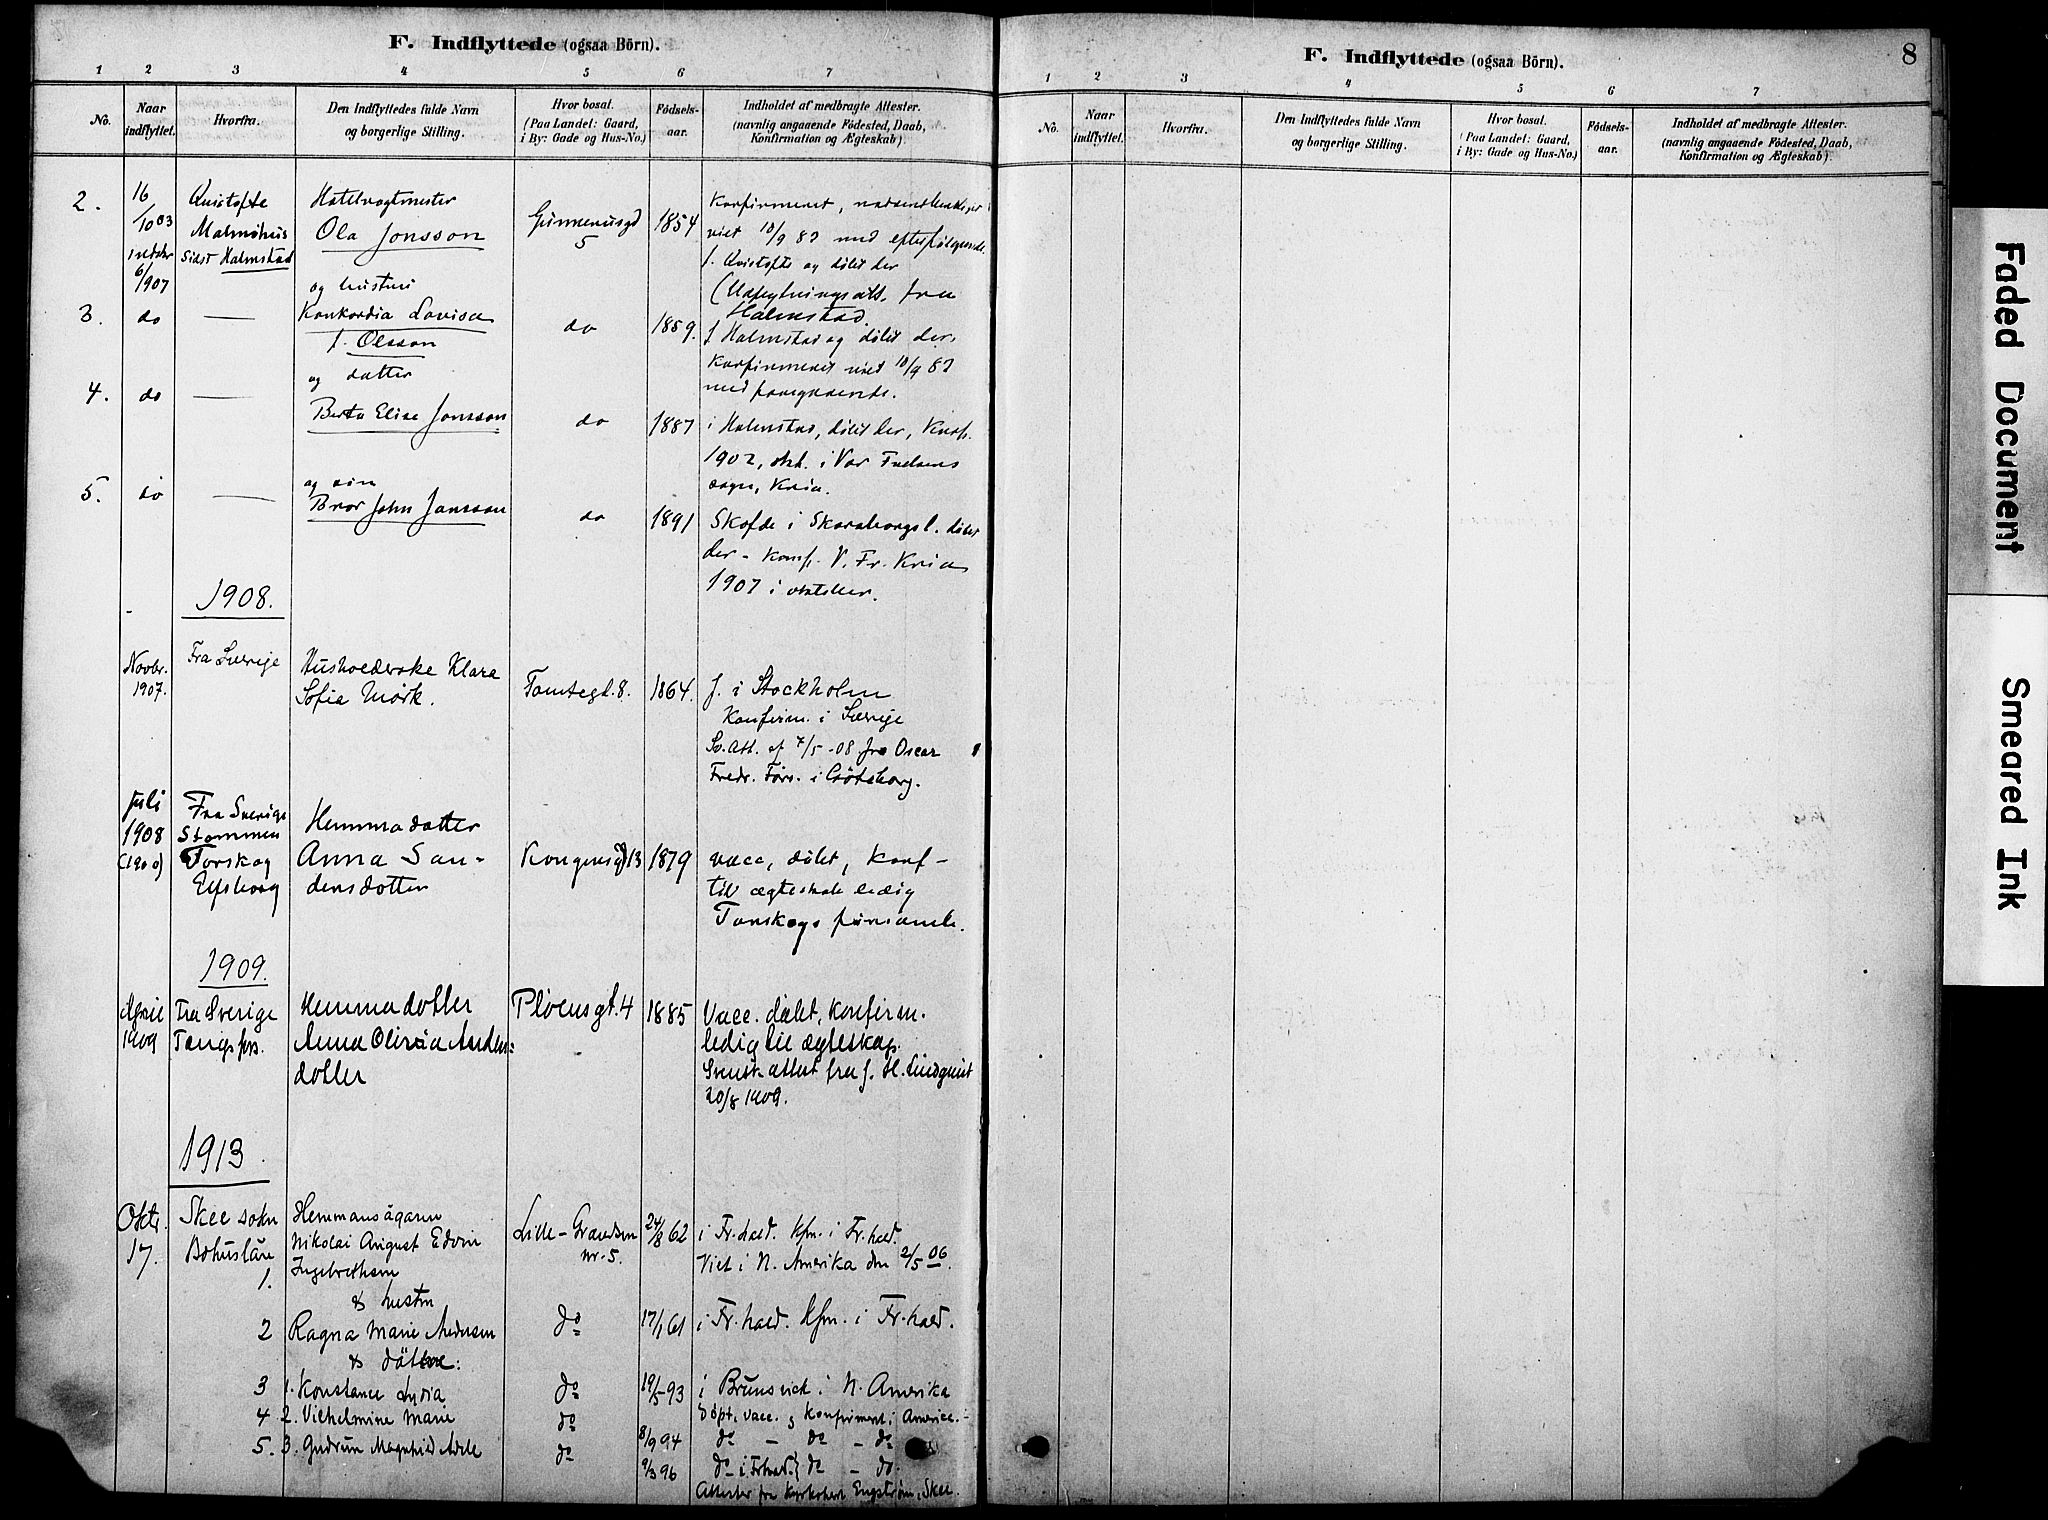 F. Indflyttede (ogsaa Börn).
1 2 3 4 5 6 7
No. Naar indflyttet. Hvorfra. Den Indflyttedes fulde Navn og borgerlige Stilling. Hvor bosat. (Paa Landet: Gaard, i By: Gade og Hus-No.) Födsels-aar. Indholdet af medbragte Attester. (navnlig angaaende Födested, Daab, Konfirmation og Ægteskab).
2. 16/10 03 Quistofte
Malmöhus
sidst Halmstad
6/1907
Ola Jonsson
5 1854 Konfirmeret,
viet 10/9 82 med efterfölgende
f. Quistofte og döbt der
og hustru
fra Halmstad.
3. do — Konkordia Lovisa
f. Olsson
do 1859. f Halmstad og döbt der.
Konfirmeret viet 10/9 82
med foregaaende.
og datter
4. do — Berta Elise Jonsson
do 1887 i Halmstad, döbt der, Konf.
1902, okt. i Vor Frelsers
sogn, Kria.
og sön
5. do — Bror John Jonsson
do 1891 Skofde i Skaraborgs l. döbt
der - Konf. V. Fr. Kria
1907 i oktober.
1908.
Novbr. 1907. Fra Sverige Husholderske Klara
Sofia Mörk. Tomtegt. 8. 1864. f. i Stockholm
Konfirm. i Sverige
Sv. Att. af 7/5 -08 fra Oscar
Fredr. Förs. i Göteborg.
Juli
1908 Fra Sverige
Stommen
Torskog
Elfsborg
Hemmadatter
Anna San-
densdotter
Kongensgt 13 1879 vacc, döbt, Konf-
til ægteskab ledig
Torskogs församl.
1909.
April
1909 Fra Sverige Hemmadotter
Anna Olivia Anders=
dotter
Plöensgt. 4 1885 Vacc. döbt, Konfirm.
ledig til ægteskap.
Svensk attest fra f. H. Lindquist
20/8 1909.
1913.
Oktr.
17. Skee sokn
Bohuslän
1. Hemmansägaren
Nikolai August Edvin
Ingebrethsen
Lille-Grændsen
nr. 5. 24/8 62 i Fr.hald. Kfm. i Fr.hald.
Viet i N. Amerika den 2/5 06.
& hustru
2 Ragna Marie Andersen do 17/1 61 i Fr.hald. Kfm. i Fr.hald.
& döttre:
3 1. Konstance Lydia do 19/5-93 i Brunsvick i N. Amerika
Döpt. vacc. & Konfirmert i America.
4 2. Vilhelmine Marie do 8/9 94 do - do - do
5. 3. Gudrun Magnhild Adele do 9/3 96 do - i Frhald. do - do.
Attester fra Kyrkoherr Engström, Skee.
F. Indflyttede (ogsaa Börn).
8
1 2 3 4 5 6 7
No. Naar indflyttet. Hvorfra. Den Indflyttedes fulde Navn og borgerlige Stilling. Hvor bosat. (Paa Landet: Gaard, i By: Gade og Hus-No.) Födsels-aar. Indholdet af medbragte Attester. (navnlig angaaende Födested, Daab, Konfirmation og Ægteskab).
Faded Document
Smeared Ink